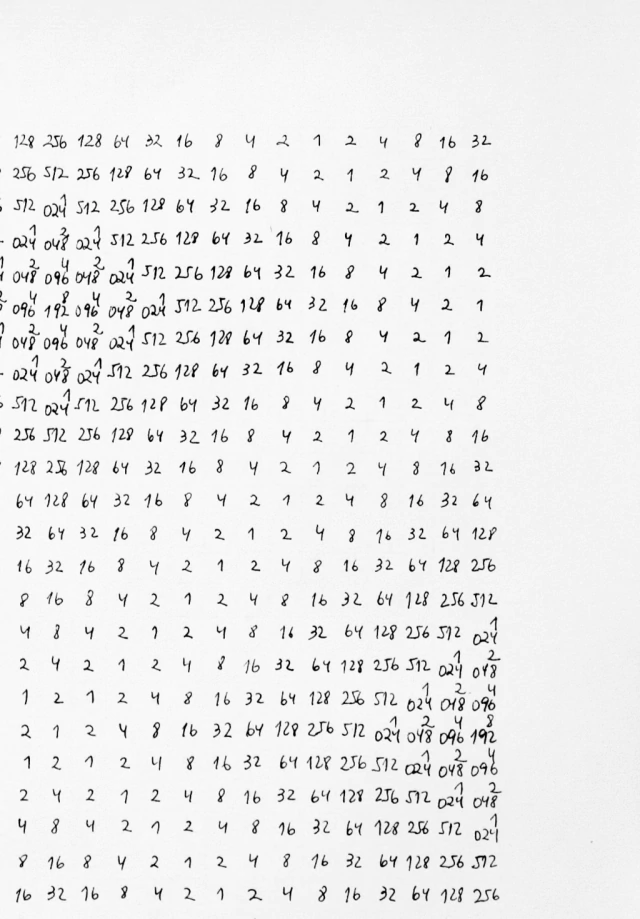 128 256 128 64 32 16 8 4 2 1 2 4 8 16 32
256 512 256 128 64 32 16 8 4 2 1 2 4 8 16
512 1024 512 256 128 64 32 16 8 4 2 1 2 4 8
1024 2048 1024 512 256 128 64 32 16 8 4 2 1 2 4
2048 4096 2048 1024 512 256 128 64 32 16 8 4 2 1 2
4096 8192 4096 2048 1024 512 256 128 64 32 16 8 4 2 1
2048 4096 2048 1024 512 256 128 64 32 16 8 4 2 1 2
1024 2048 1024 512 256 128 64 32 16 8 4 2 1 2 4
512 1024 512 256 128 64 32 16 8 4 2 1 2 4 8
256 512 256 128 64 32 16 8 4 2 1 2 4 8 16
128 256 128 64 32 16 8 4 2 1 2 4 8 16 32
64 128 64 32 16 8 4 2 1 2 4 8 16 32 64
32 64 32 16 8 4 2 1 2 4 8 16 32 64 128
16 32 16 8 4 2 1 2 4 8 16 32 64 128 256
8 16 8 4 2 1 2 4 8 16 32 64 128 256 512
4 8 4 2 1 2 4 8 16 32 64 128 256 512 1024
2 4 2 1 2 4 8 16 32 64 128 256 512 1024 2048
1 2 1 2 4 8 16 32 64 128 256 512 1024 2048 4096
2 1 2 4 8 16 32 64 128 256 512 1024 2048 4096 8192
1 2 1 2 4 8 16 32 64 128 256 512 1024 2048 4096
2 4 2 1 2 4 8 16 32 64 128 256 512 1024 2048
4 8 4 2 1 2 4 8 16 32 64 128 256 512 1024
8 16 8 4 2 1 2 4 8 16 32 64 128 256 512
16 32 16 8 4 2 1 2 4 8 16 32 64 128 256